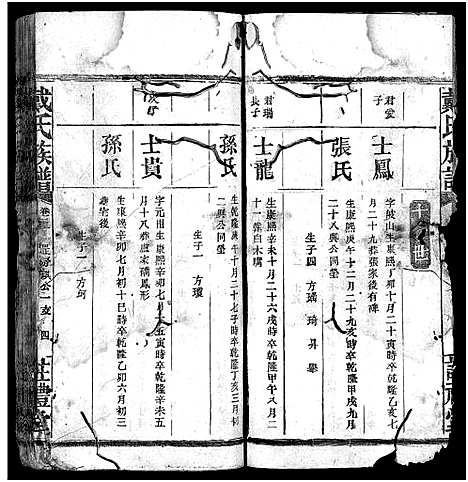 戴氏族譜
君愛
子
士鳳
字岐山生康熙丁卯十月二十寅時卒乾隆乙亥七
月二十九葬張家後有碑
張氏
生康熙庚午十二月二十九亥時卒乾隆甲戌九月
二十八與公同塋
生子四 方瑤 琦
君瑞
長子
士龍
生康熙辛未十月二十六戌時卒乾隆甲午八月二
十一葬白木
孫氏
生乾隆
午十月二十七子時卒乾隆丁亥三月初
二與公同塋
生子一 方瓊
次子
士貴
字元
生康熙辛卯七月
五寅時卒乾隆辛未五
月十八葬
家
形
孫氏
生康熙辛卯七月初十巳時卒乾隆乙卯六月初三
葬宅後
生子一 方珂
戴氏族譜
卷
四